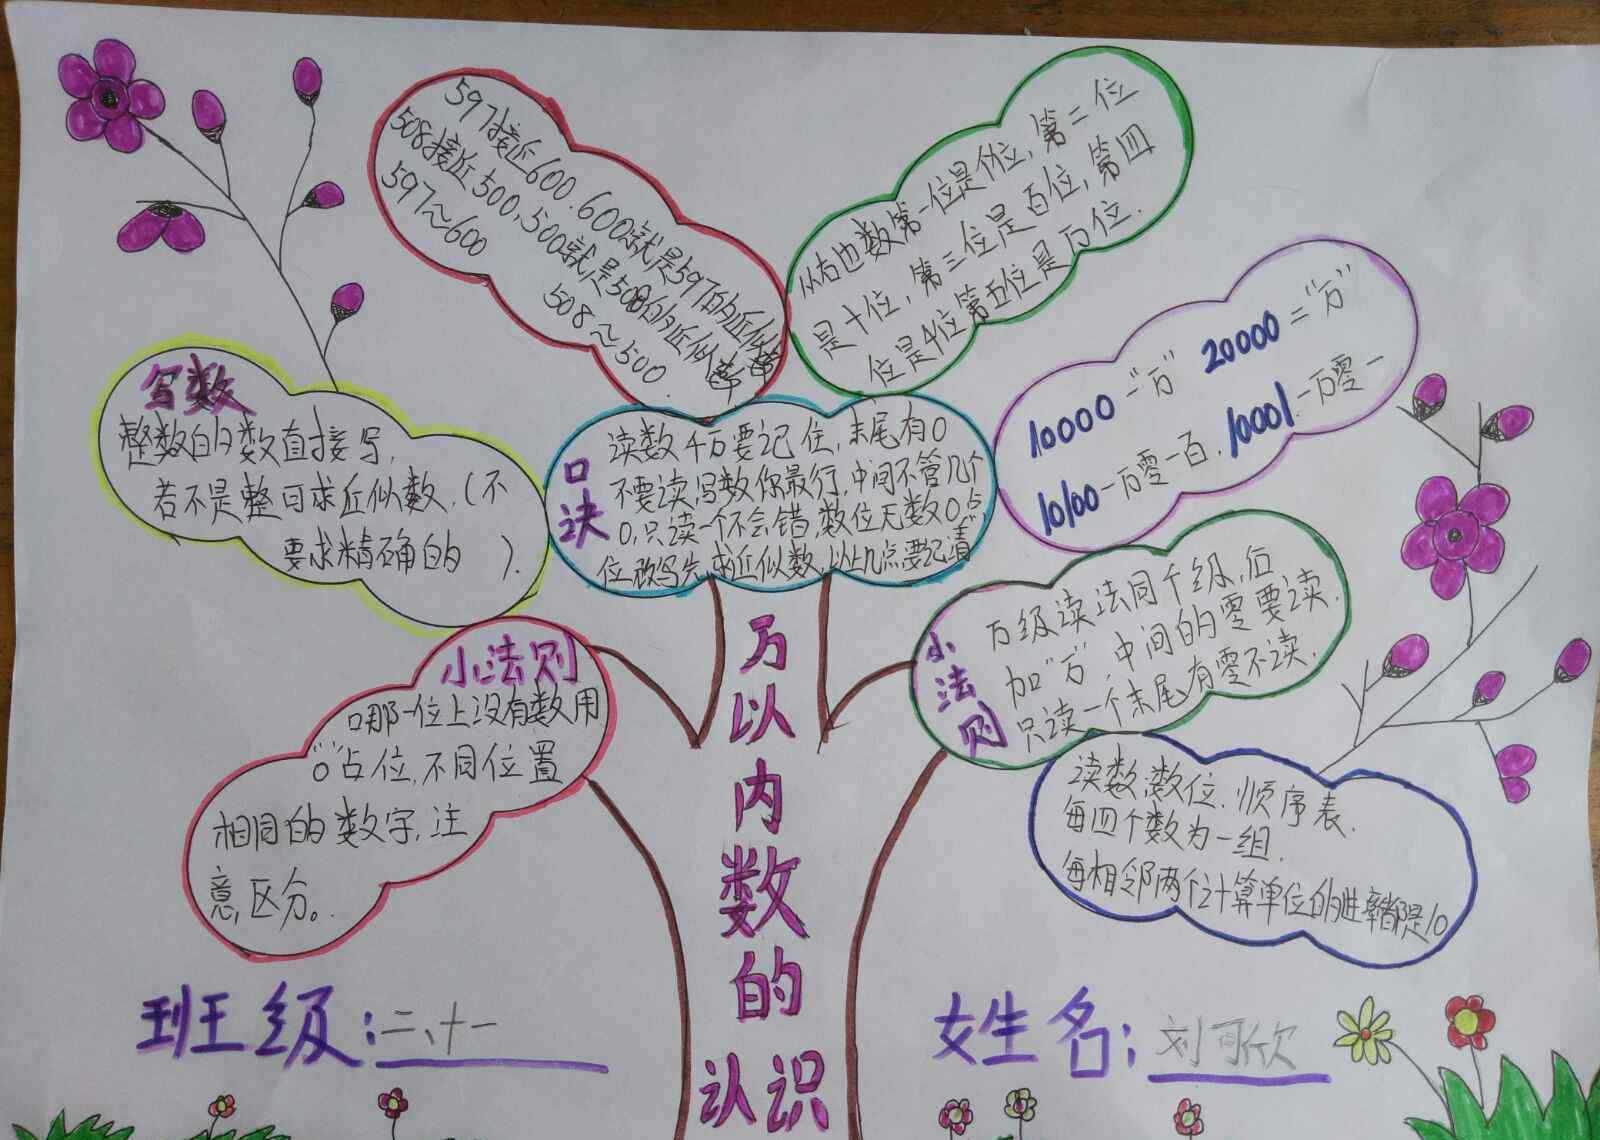 597接近600.600就是597的近似数
508接近500、500就是508的近似数
597~600
508~500
从右边数第一位是个位,第二位
是十位,第三位是百位,第四
位是千位第五位是万位.
写数
整数的数直接写,
若不是整可求近似数.(不
要求精确的 ).
口诀
读数千万要记住,末尾有0
不要读,写数你最行,中间不管几个
0,只读一个不会错,数位无数0点
位改写先,求近似数,以上几点要记清
10000="万" 20000="万"
10100-一万零一百.10001.一万零一
小法则
哪一位上没有数用
"0"占位,不同位置
相同的数字,注
意,区分。
小法则
万级读法同个级,后
加"万",中间的零要读.
只读一个末尾有零不读.
读数,数位.顺序表.
每四个数为一组.
每相邻两个计算单位的进率都是10
万以内数的认识
班级:二、十一
姓名:刘可欣